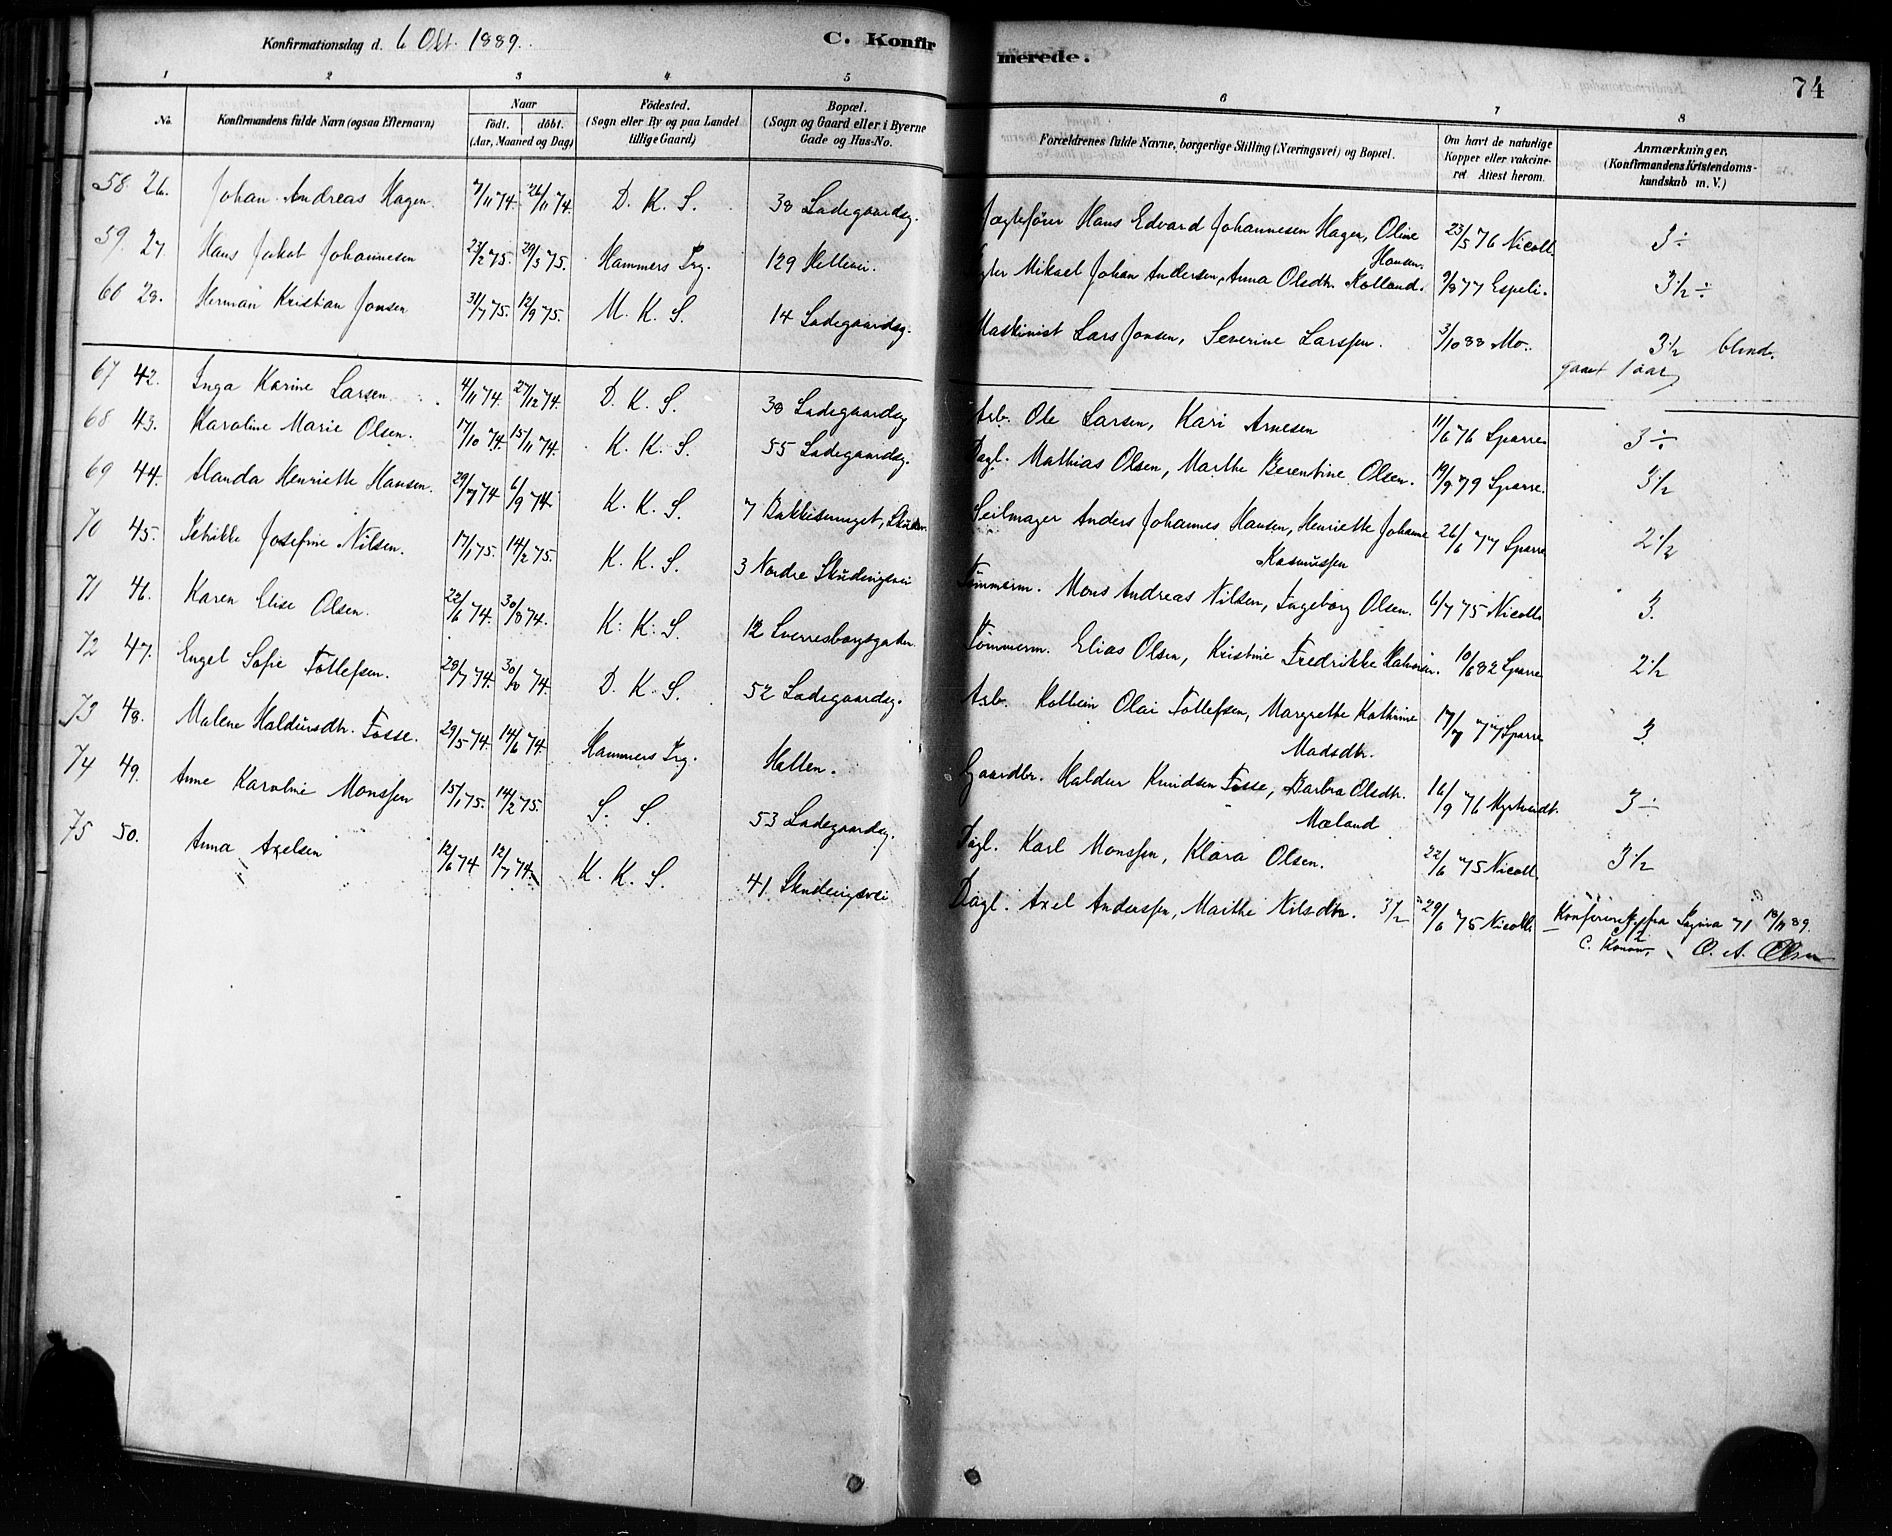 Konfirmationsdag d. 6 Okt. 1889.
C. Konfirmerede.
74
1 2 3 4 5 6 7 8
No. | Konfirmandens fulde Navn (ogsaa Efternavn) | Naar födt. döbt. (Aar, Maaned og Dag) | Födested. (Sogn eller By og paa Landet tillige Gaard) | Bopæl. (Sogn og Gaard eller i Byerne Gade og Hus-No. | Forældrenes fulde Navne, borgerlige Stilling (Næringsvei) og Bopæl. | Om havt de naturlige Kopper eller vakcineret. Attest herom. | Anmærkninger, (Konfirmandens Kristendomskundskab m. V.)
58. 26. Johan Andreas Hagen. 7/11 74. 26/11 74. D. K. S. 38 Ladegaardsg. Jægtefører Hans Edvard Johannesen Hagen, Oline Hansen. 23/5 76 Nicoll. 3 ÷
59. 27. Hans Jakob Johannesen 23/2 75. 29/3 75. Hammers Prg. 129 Hellevei. Mikael Johan Andersen, Anna Olsdtr. 77 Espeli. 3 1/2 ÷
60 28. Herman Kristian Jonsen 31/7 75. 12/9 75. M. K. S. 14 Ladegaardsg. Maskinist Lars Jonsen, Severine Larssen. 3/10 88 Mo. 3 1/2 blind.
gaaet 1 aar
67 42. Inga Karine Larsen 4/11 74. 27/12 74. D. K. S. 38 Ladegaardsg Arb. Ole Larsen, Kari Arnesen 11/6 76 Sparre 3 ÷
68 43. Karoline Marie Olsen. 17/10 74. 15/11 74. K. K. S. 55 Ladegaardsg. Dagl. Mathias Olsen, Marthe Berentine Olsen. 19/9 79 Sparre. 3 1/2
69 44. Handa Henriette Hansen. 29/7 74 6/9 74. K. K. S. 7 Seilmager Anders Johannes Hansen, Henriette Johanne Rasmussen 26/6 77 Sparre 2 1/2
70 45. Josefine Nilsen. 17/1 75. 14/2 75. K. K. S. 3 Nordre Skudeviksvei Tømmerm. Mons Andreas Nilsen, Ingeborg Olsen. 6/7 75 Nicoll. 3.
71 46. Karen Elise Olsen. 22/6 74. 30/8 74. K. K. S. 12 Sverresborgsgaden Tømmerm. Elias Olsen, Kristine Fredrikke 10/6 82 Sparre 2 1/2
72 47. Engel Sofie Tollefsen. 29/7 74. 30/8 74. D. K. S. 52 Ladegaardsg. Arb. Kolbein Olai Tollefsen, Margrethe Kathrine Madsdtr. 17/7 77 Sparre 3.
73 48. Malene Haldursdtr. Fosse. 29/5 74. 14/6 74. Hammers Prg. Hellen. Gaardbr. Haldur Knudsen Fosse, Barbra Olsdtr. Mæland 16/9 76 Myrtvedt. 3 ÷
74 49. Anne Karoline Monssen 15/1 75. 14/2 75. S. S. 53 Ladegaardsg. Dagl. Karl Monssen, Klara Olsen. 22/6 75 Nicoll. 3 1/2
75 50. Anna Axelsen 12/6 74 12/7 74. K. K. S. 41. Skudeviksvei Dagl. Axel Anderssen, Marthe Nilsdtr. 3 1/2 29/6 75 Nicoll. Konfereret fra Pagina 71 18/11 89.
C. Konow, O. A. Olsen